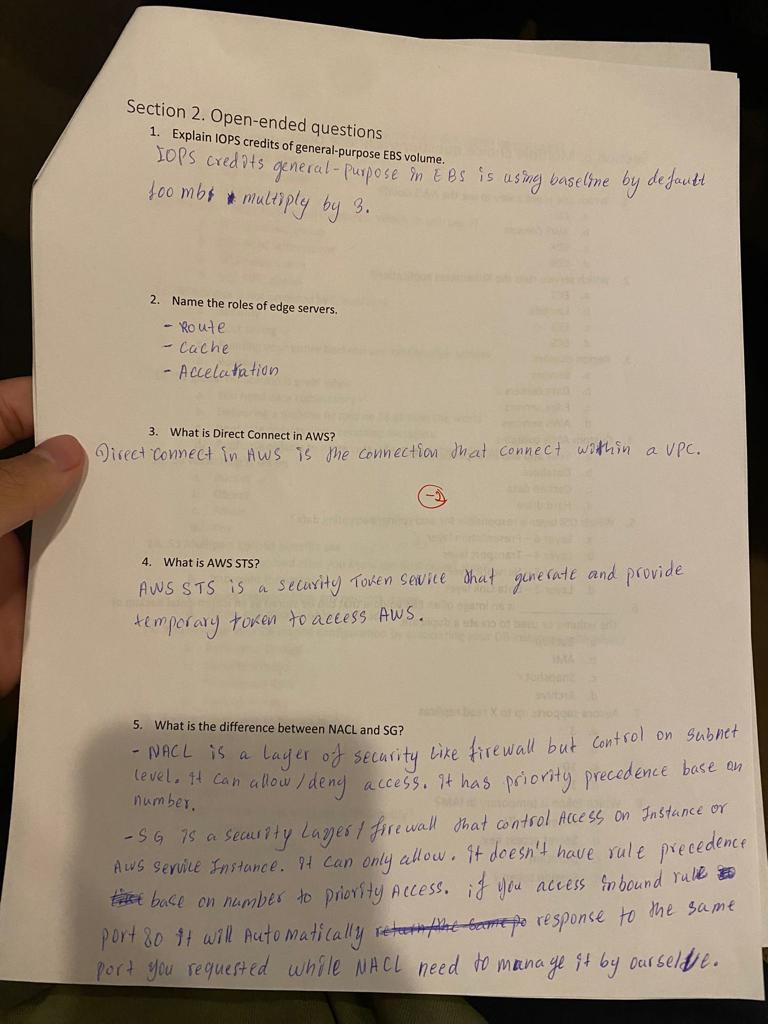 Section 2. Open-ended questions
1. Explain IOPS credits of general-purpose EBS volume.
IOPS credits general-purpose in EBS is using baseline by default
100 mbs multiply by 3.
2. Name the roles of edge servers.
- Route
- Cache
- Accelaration
3. What is Direct Connect in AWS?
Direct connect in AWS is the connection that connect within a VPC.
-2
4. What is AWS STS?
AWS STS is a security Token service that generate and provide
temporary token to access AWS.
5. What is the difference between NACL and SG?
- NACL is a layer of security like firewall but control on subnet
level. it can allow/deny access. it has priority precedence base on
number.
- SG is a security layer/firewall that control Access on Instance or
AWS service Instance. it can only allow. it doesn't have rule precedence
base on number to priority Access. if you access inbound rule
port 80 it will Automatically return/the same po response to the same
port you requested while NACL need to manage it by ourselve.